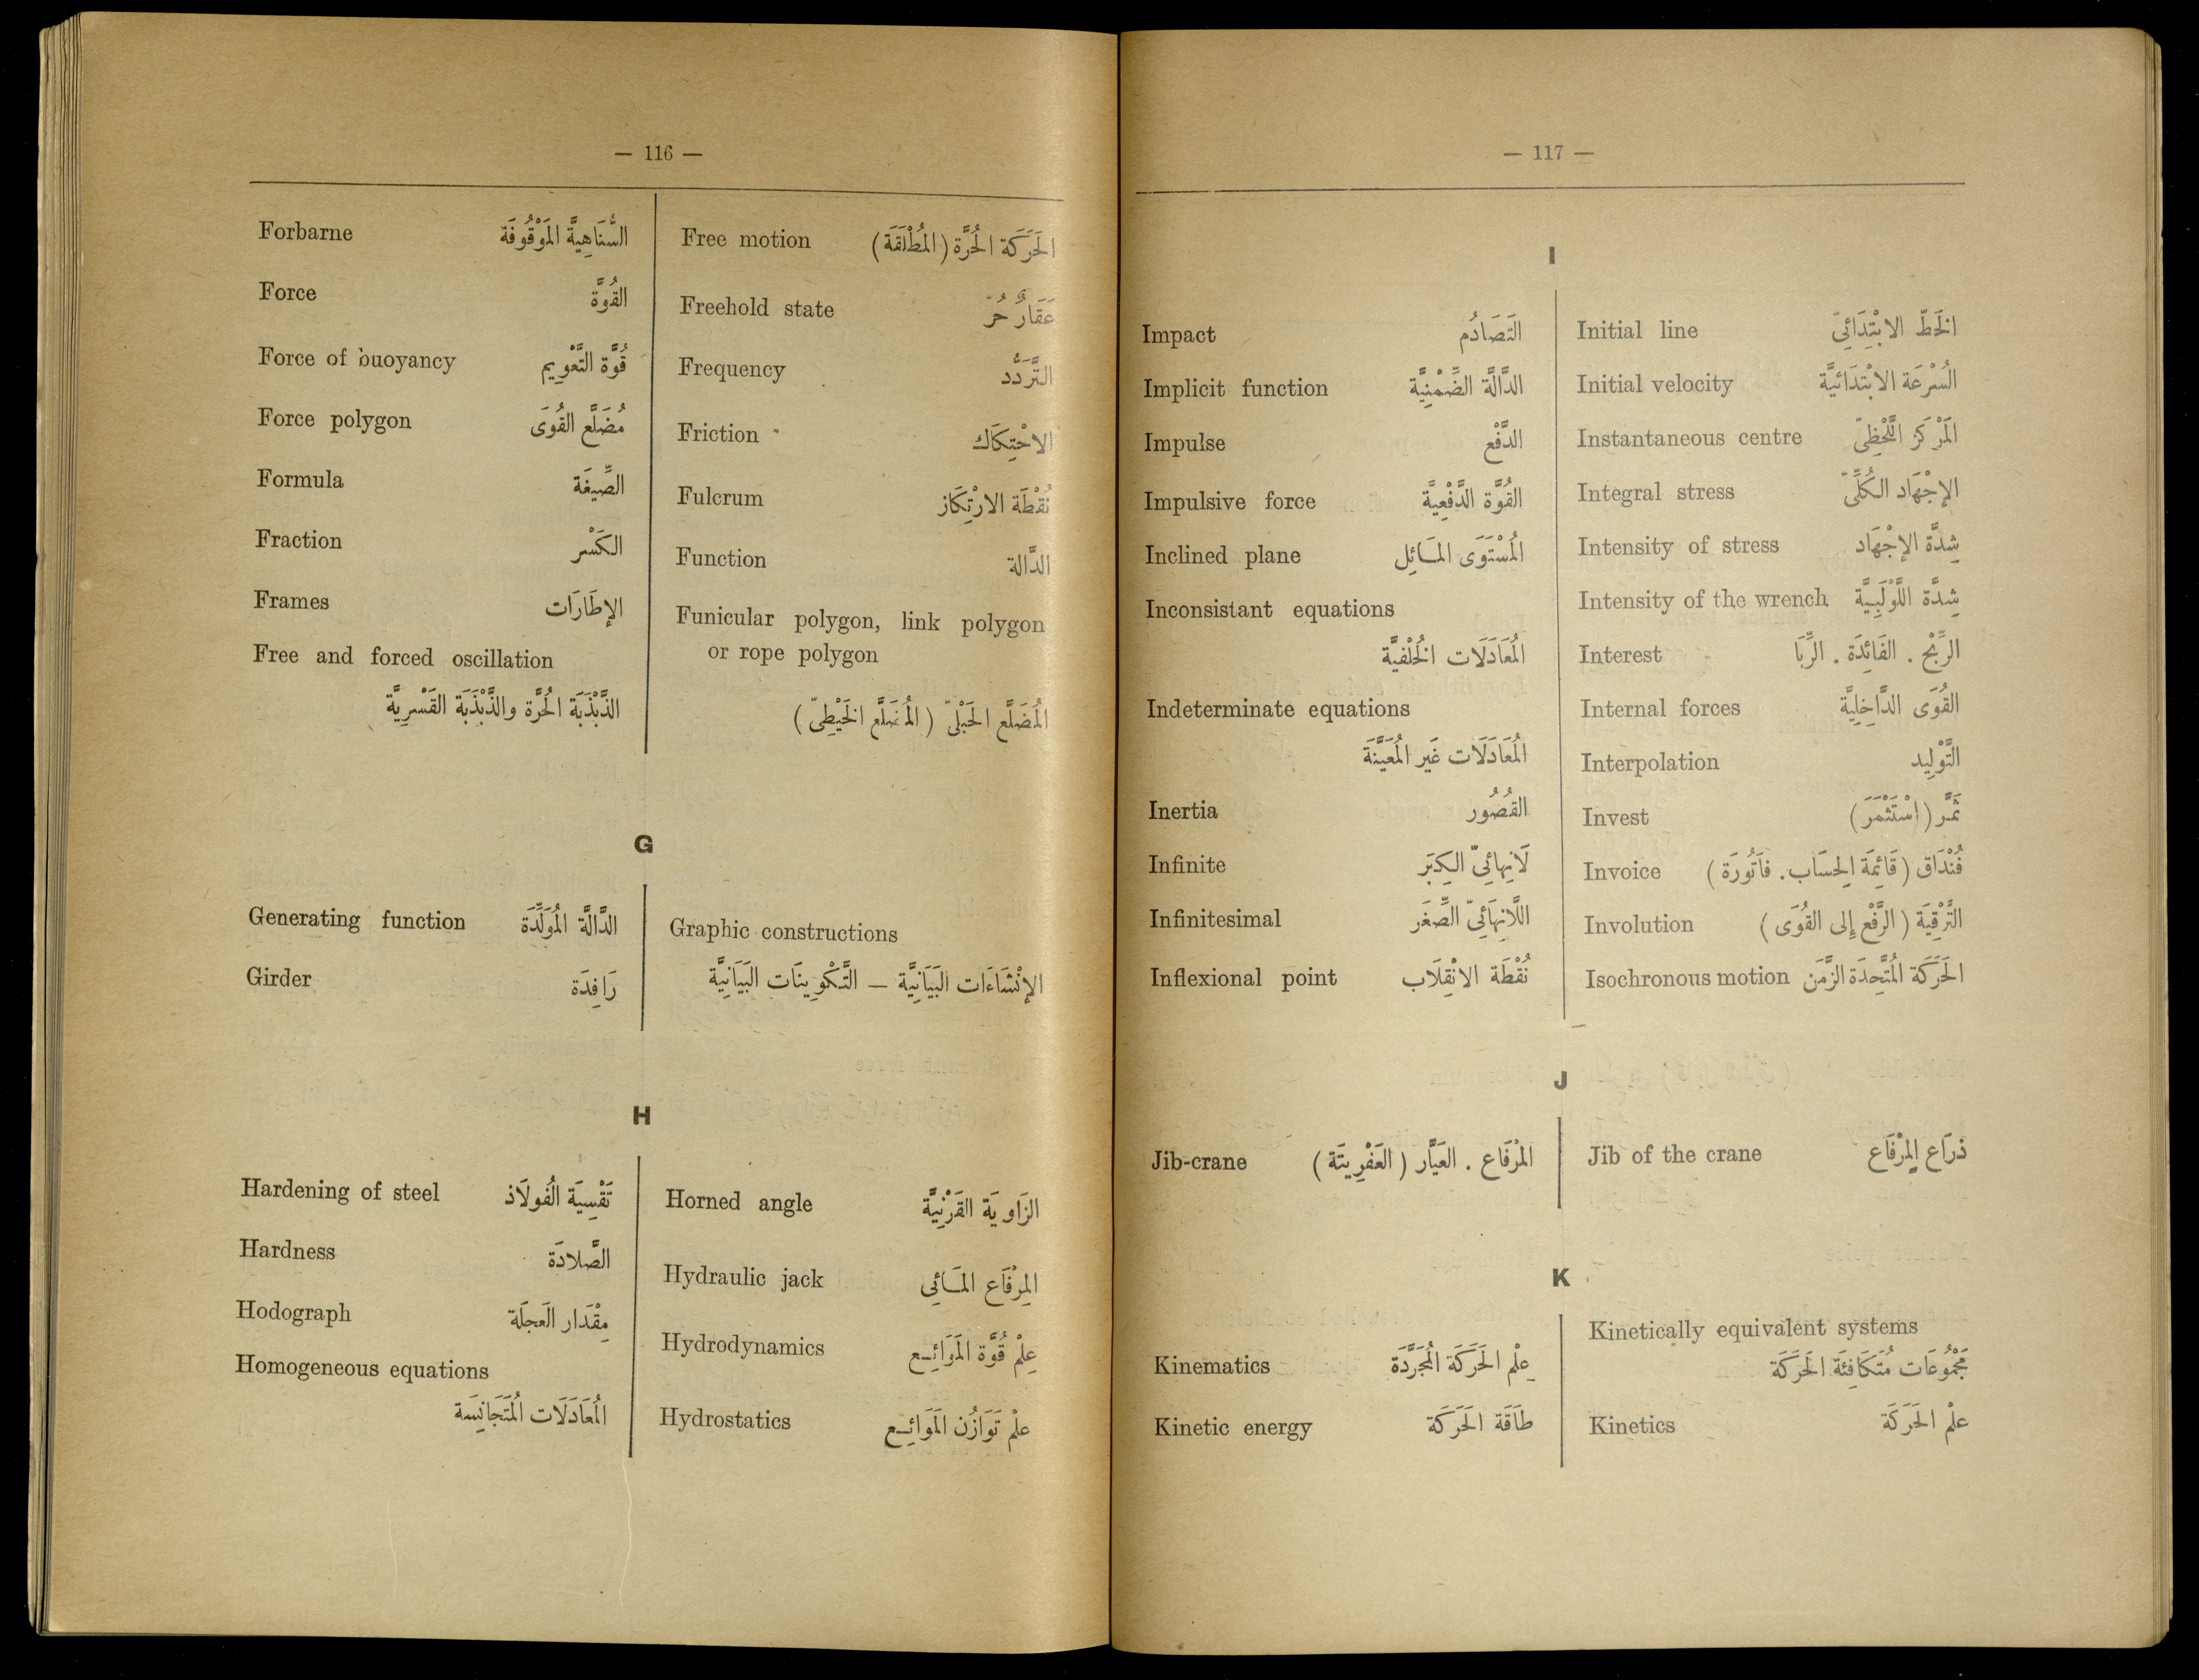 — 116 —
Forbarne السَّنَاهِيَّة المَوْقُوفَة
Force القُوَّة
Force of buoyancy قُوَّة التَّعْوِيم
Force polygon مُضَلَّع القُوَى
Formula الصِّيغَة
Fraction الكَسْر
Frames الإطَارَات
Free and forced oscillation
الذَّبْذَبَة الحُرَّة والذَّبْذَبَة القَسْرِيَّة
Free motion الحَرَكَة الحُرَّة (المُطْلَقَة)
Freehold state عَقَارٌ حُرّ
Frequency التَّرَدُّد
Friction الاحْتِكَاك
Fulcrum نُقْطَة الارْتِكَاز
Function الدَّالة
Funicular polygon, link polygon
or rope polygon
المُضَلَّع الحَبْلىّ (المُضَلَّع الخَيْطِىّ)
G
Generating function الدَّالَّة المُوَلِّدَة
Girder رَافِدَة
Graphic constructions
الإنْشَاءَات البَيَانِيَّة — التَّكْوِينَات البَيَانِيَّة
H
Hardening of steel تَقْسِيَة الفُولَاذ
Hardness الصَّلادَة
Hodograph مِقْدَار العَجَلَة
Homogeneous equations
المُعَادَلَات المُتَجَانِسَة
Horned angle الزَاوِيَة القَرْنِيَّة
Hydraulic jack المِرْفَاع المَائِى
Hydrodynamics عِلْمْ قُوَّة المَوَائِع
Hydrostatics عِلْمْ تَوَازُن المَوَائِع
— 117 —
I
Impact التَصَادُم
Implicit function الدَّالَّة الضِّمْنِيَّة
Impulse الدَّفْع
Impulsive force القُوَّة الدَّفْعِيَّة
Inclined plane المُسْتَوَى المَائِل
Inconsistant equations
المُعَادَلَات الخُلْفِيَّة
Indeterminate equations
المُعَادَلَات غَير المُعَيَّنَة
Inertia القُصُور
Infinite لَانِهائِىّ الكِبَر
Infinitesimal اللَّانِهَائِىّ الصِّغَر
Inflexional point نُقْطَة الانْقِلَاب
Initial line الخَطّ الابْتِدَائِىّ
Initial velocity السُرْعَة الابْتِدَائيَّة
Instantaneous centre المَرْكَز اللَّحْظِىّ
Integral stress الإجْهَاد الكُلِّىّ
Intensity of stress شِدَّة الإجْهَاد
Intensity of the wrench شِدَّة اللَّوْلَبِيَّة
Interest الرِّبْح . الفَائِدَة . الرِّبَا
Internal forces القُوَى الدَّاخِلِيَّة
Interpolation التَّوْلِيد
Invest ثَمَّر (اسْتَثْمَرَ)
Invoice فُنْدَاق (قَائِمَة الحِسَاب. فَاتُورَة)
Involution التَّرْقِيَة (الرَّفْع إلى القُوَى)
Isochronous motion الحَرَكَة المُتَّحِدَة الزَّمَن
J
Jib-crane المِرْفَاع . العَيَّار (العَفْرِيتَة)
Jib of the crane ذرَاع المِرْفَاع
K
Kinematics عِلْم الحَرَكَة المُجَرَّدَة
Kinetic energy طَاقَة الحَرَكَة
Kinetically equivalent systems
مَجْمُوعَات مُتَكَافِئَة الحَرَكَة
Kinetics عِلْم الحَرَكَة